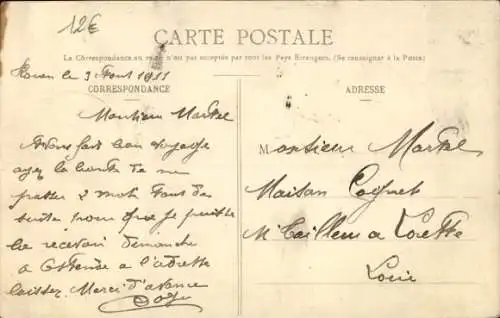 12€
CARTE POSTALE
La Correspondance au recto n'est pas acceptée par tous les Pays Etrangers. (Se renseigner à la Poste)
le 3 Aout 1911
CORRESPONDANCE
ADRESSE
Monsieur Martel
Avons fait bon voyage
ayez la bonté de me
passer 2 mots tout de
suite pour que je puisse
la recevoir dimanche
a Ostende a l'adresse
laissez. Merci d'avance
Monsieur Martel
Maison Coignet
Mr Tailleur a Lorette
Loire